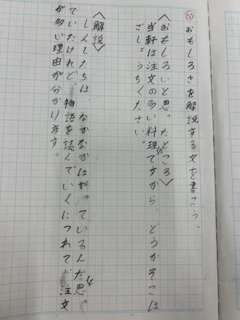 おもしろさを解説する文を書こう。
〈おもしろいと思ったところ〉
当軒は注文の多い料理店ですから、どうかそこは
ごしょうちください。
〈解説〉
しんしたちは、なかなかはやっているんだと思っ
ていたけれど、物語を読んでいくにつれて、注文
が多い理由が分かります。